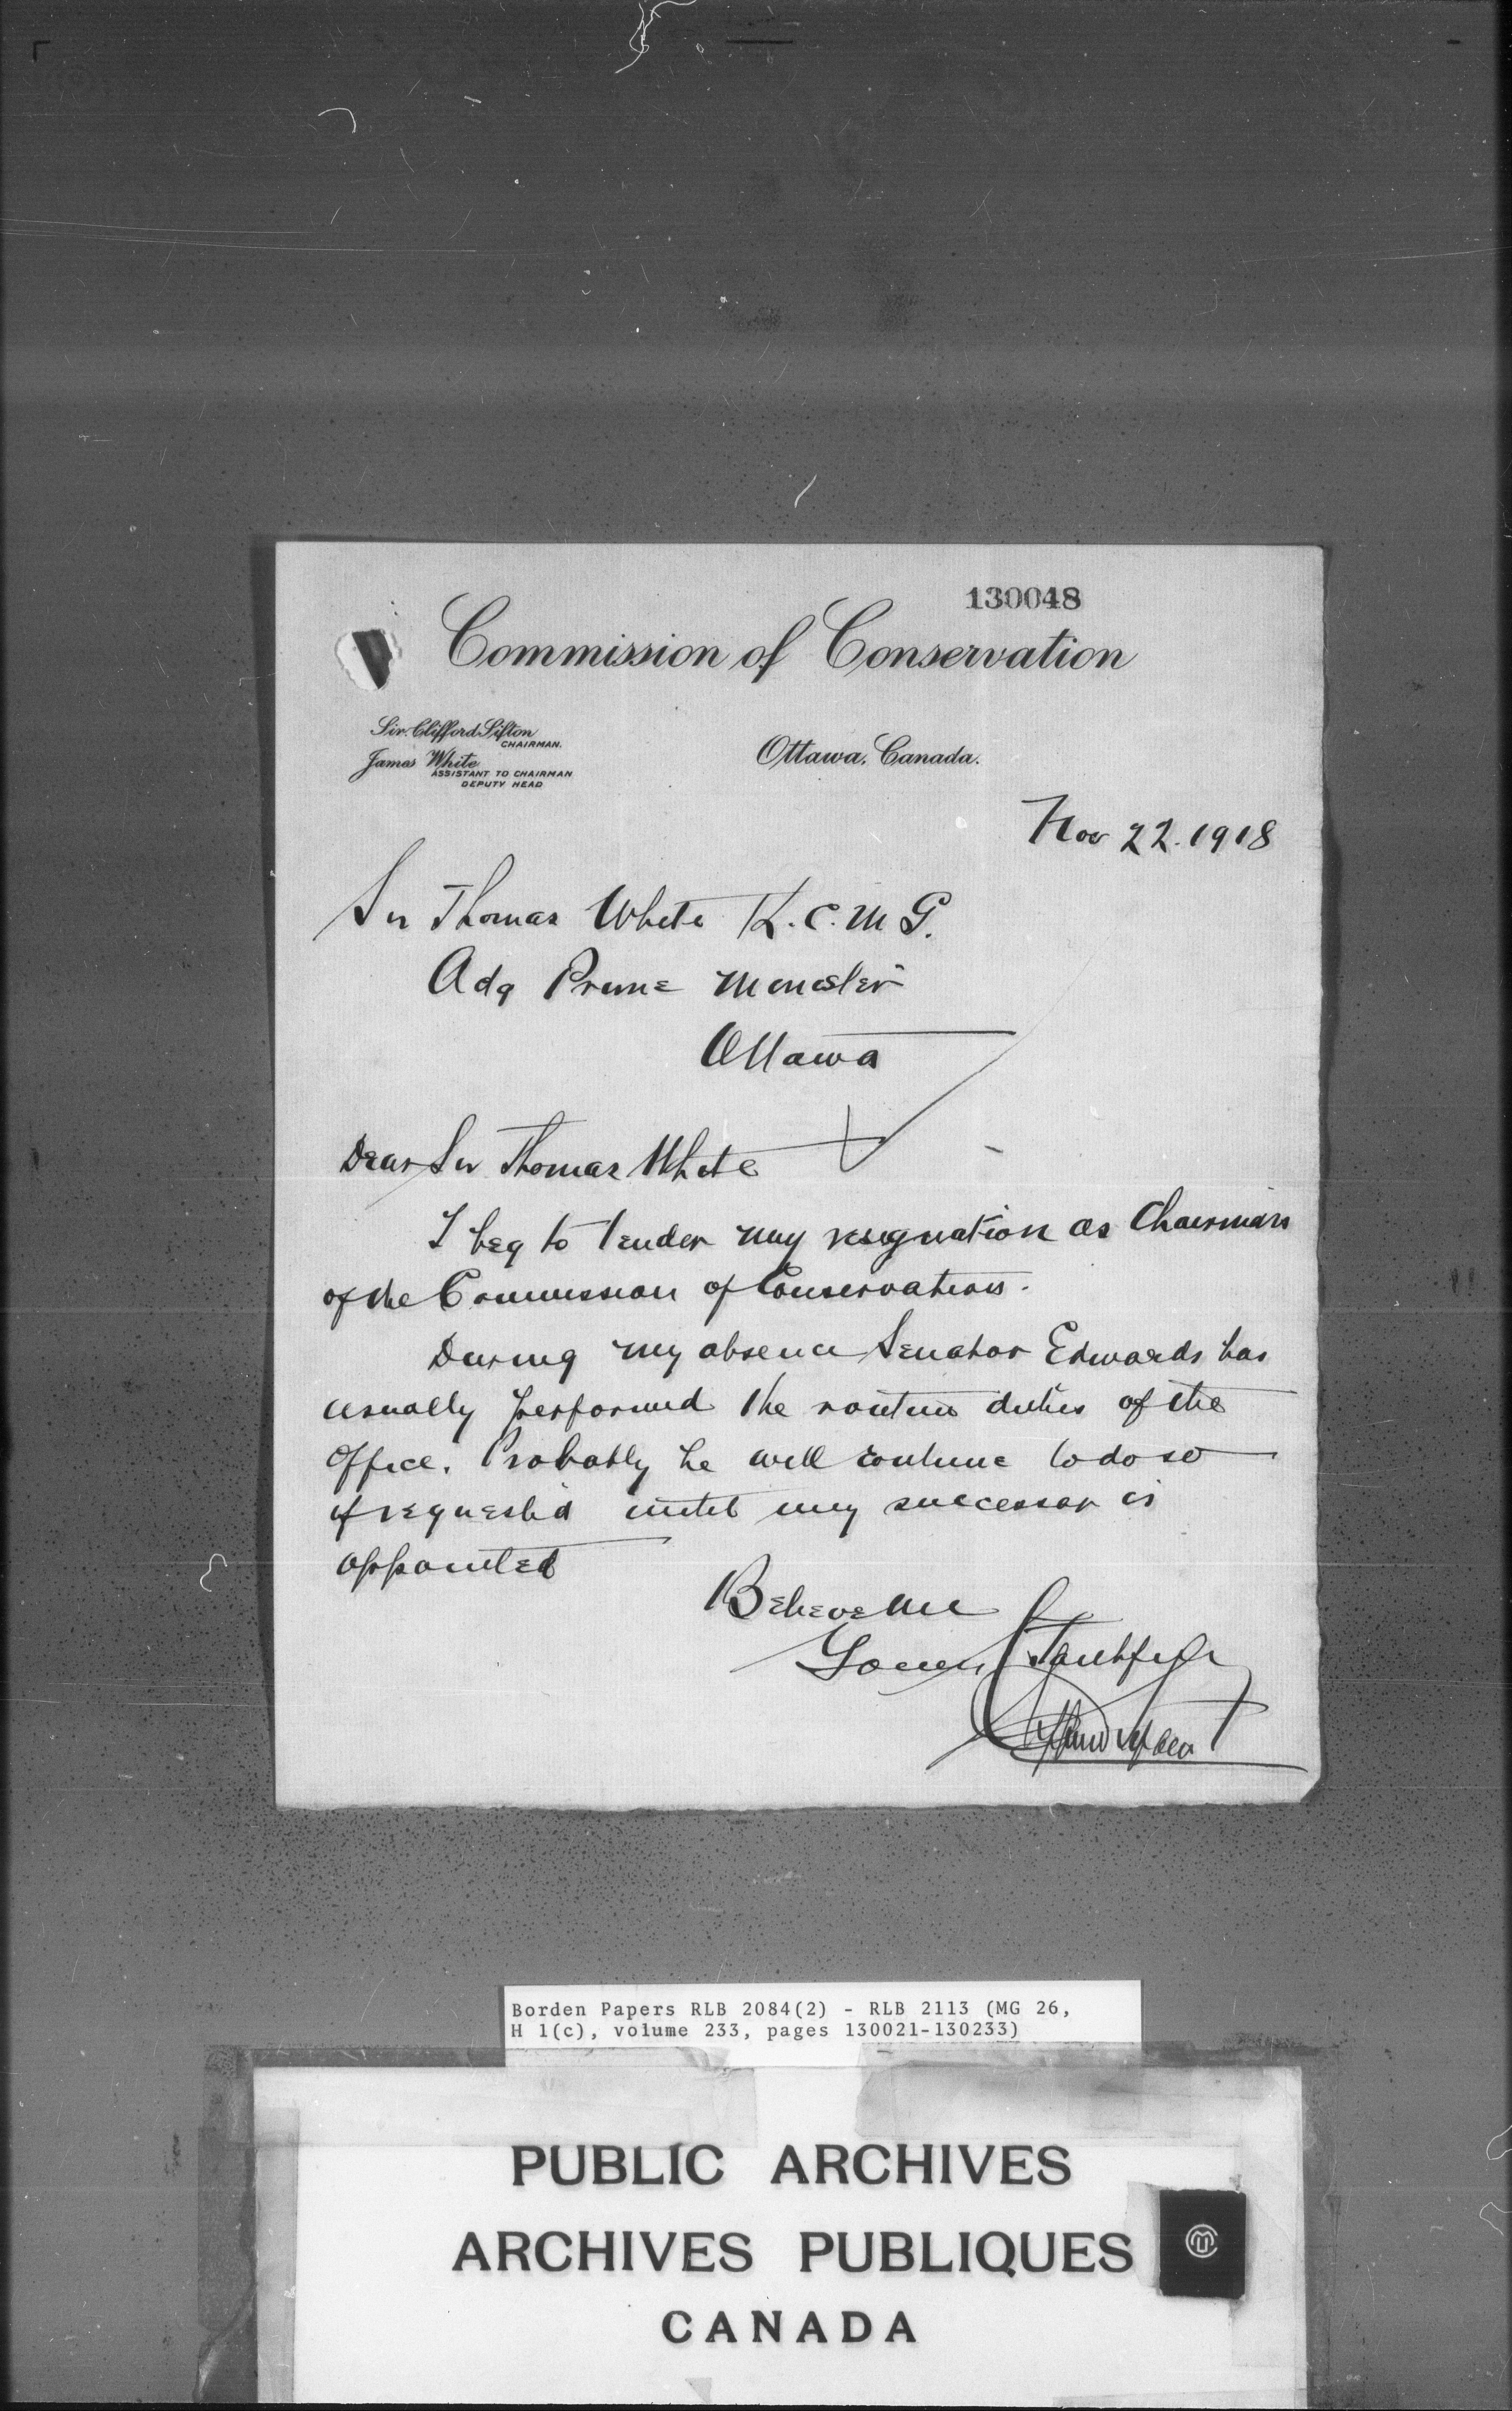 130048
Commission of Conservation
Sir Clifford Sifton
CHAIRMAN.
James White
ASSISTANT TO CHAIRMAN
DEPUTY HEAD
Ottawa, Canada.
Nov 22. 1918
Sir Thomas White K.C.M.G.
Actg Prime Minister
Ottawa
Dear Sir Thomas White
I beg to tender my resignation as Chairman
of the Commission of Conservation.
During my absence Senator Edwards has
usually performed the routine duties of the
Office. Probably he will continue to do so
if requested until my successor is
appointed
Believe me
Yours Faithfully
Clifford Sifton
Borden Papers RLB 2084(2) - RLB 2113 (MG 26,
H 1(c), volume 233, pages 130021-130233)
PUBLIC ARCHIVES
ARCHIVES PUBLIQUES
CANADA